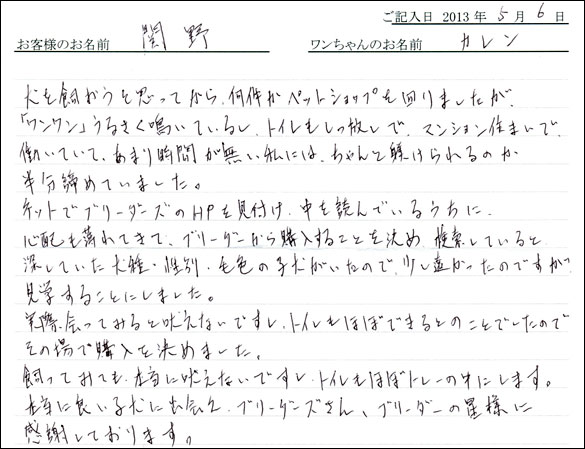 ご記入日 2013 年 5 月 6 日
お客様のお名前 関野 ワンちゃんのお名前 カレン
犬を飼おうと思ってから、何件かペットショップを回りましたが、
「ワンワン」うるさく鳴いているし、トイレもしっ放しで、マンション住まいで、
働いていて、あまり時間が無い私には、ちゃんと躾けられるのか
半分諦めていました。
ネットでブリーダーズのHPを見付け、中を読んでいるうちに、
心配も薄れてきて、ブリーダーから購入することを決め、検索していると
探していた犬種・性別・毛色の子犬がいたので、少し遠かったのですが、
見学することにしました。
実際、会ってみると吠えないですし、トイレもほぼできるとのことでしたので
その場で購入を決めました。
飼ってみても、本当に吠えないですし、トイレもほぼトレーの中にします。
本当に良い子犬に出会え、ブリーダーズさん、ブリーダーの星様に
感謝しております。